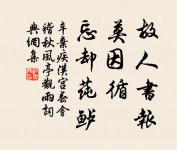 故人書報
莫因循
忘却蒓鱸
辛棄疾漢宮春會
稽秋風亭觀雨詞
典網集